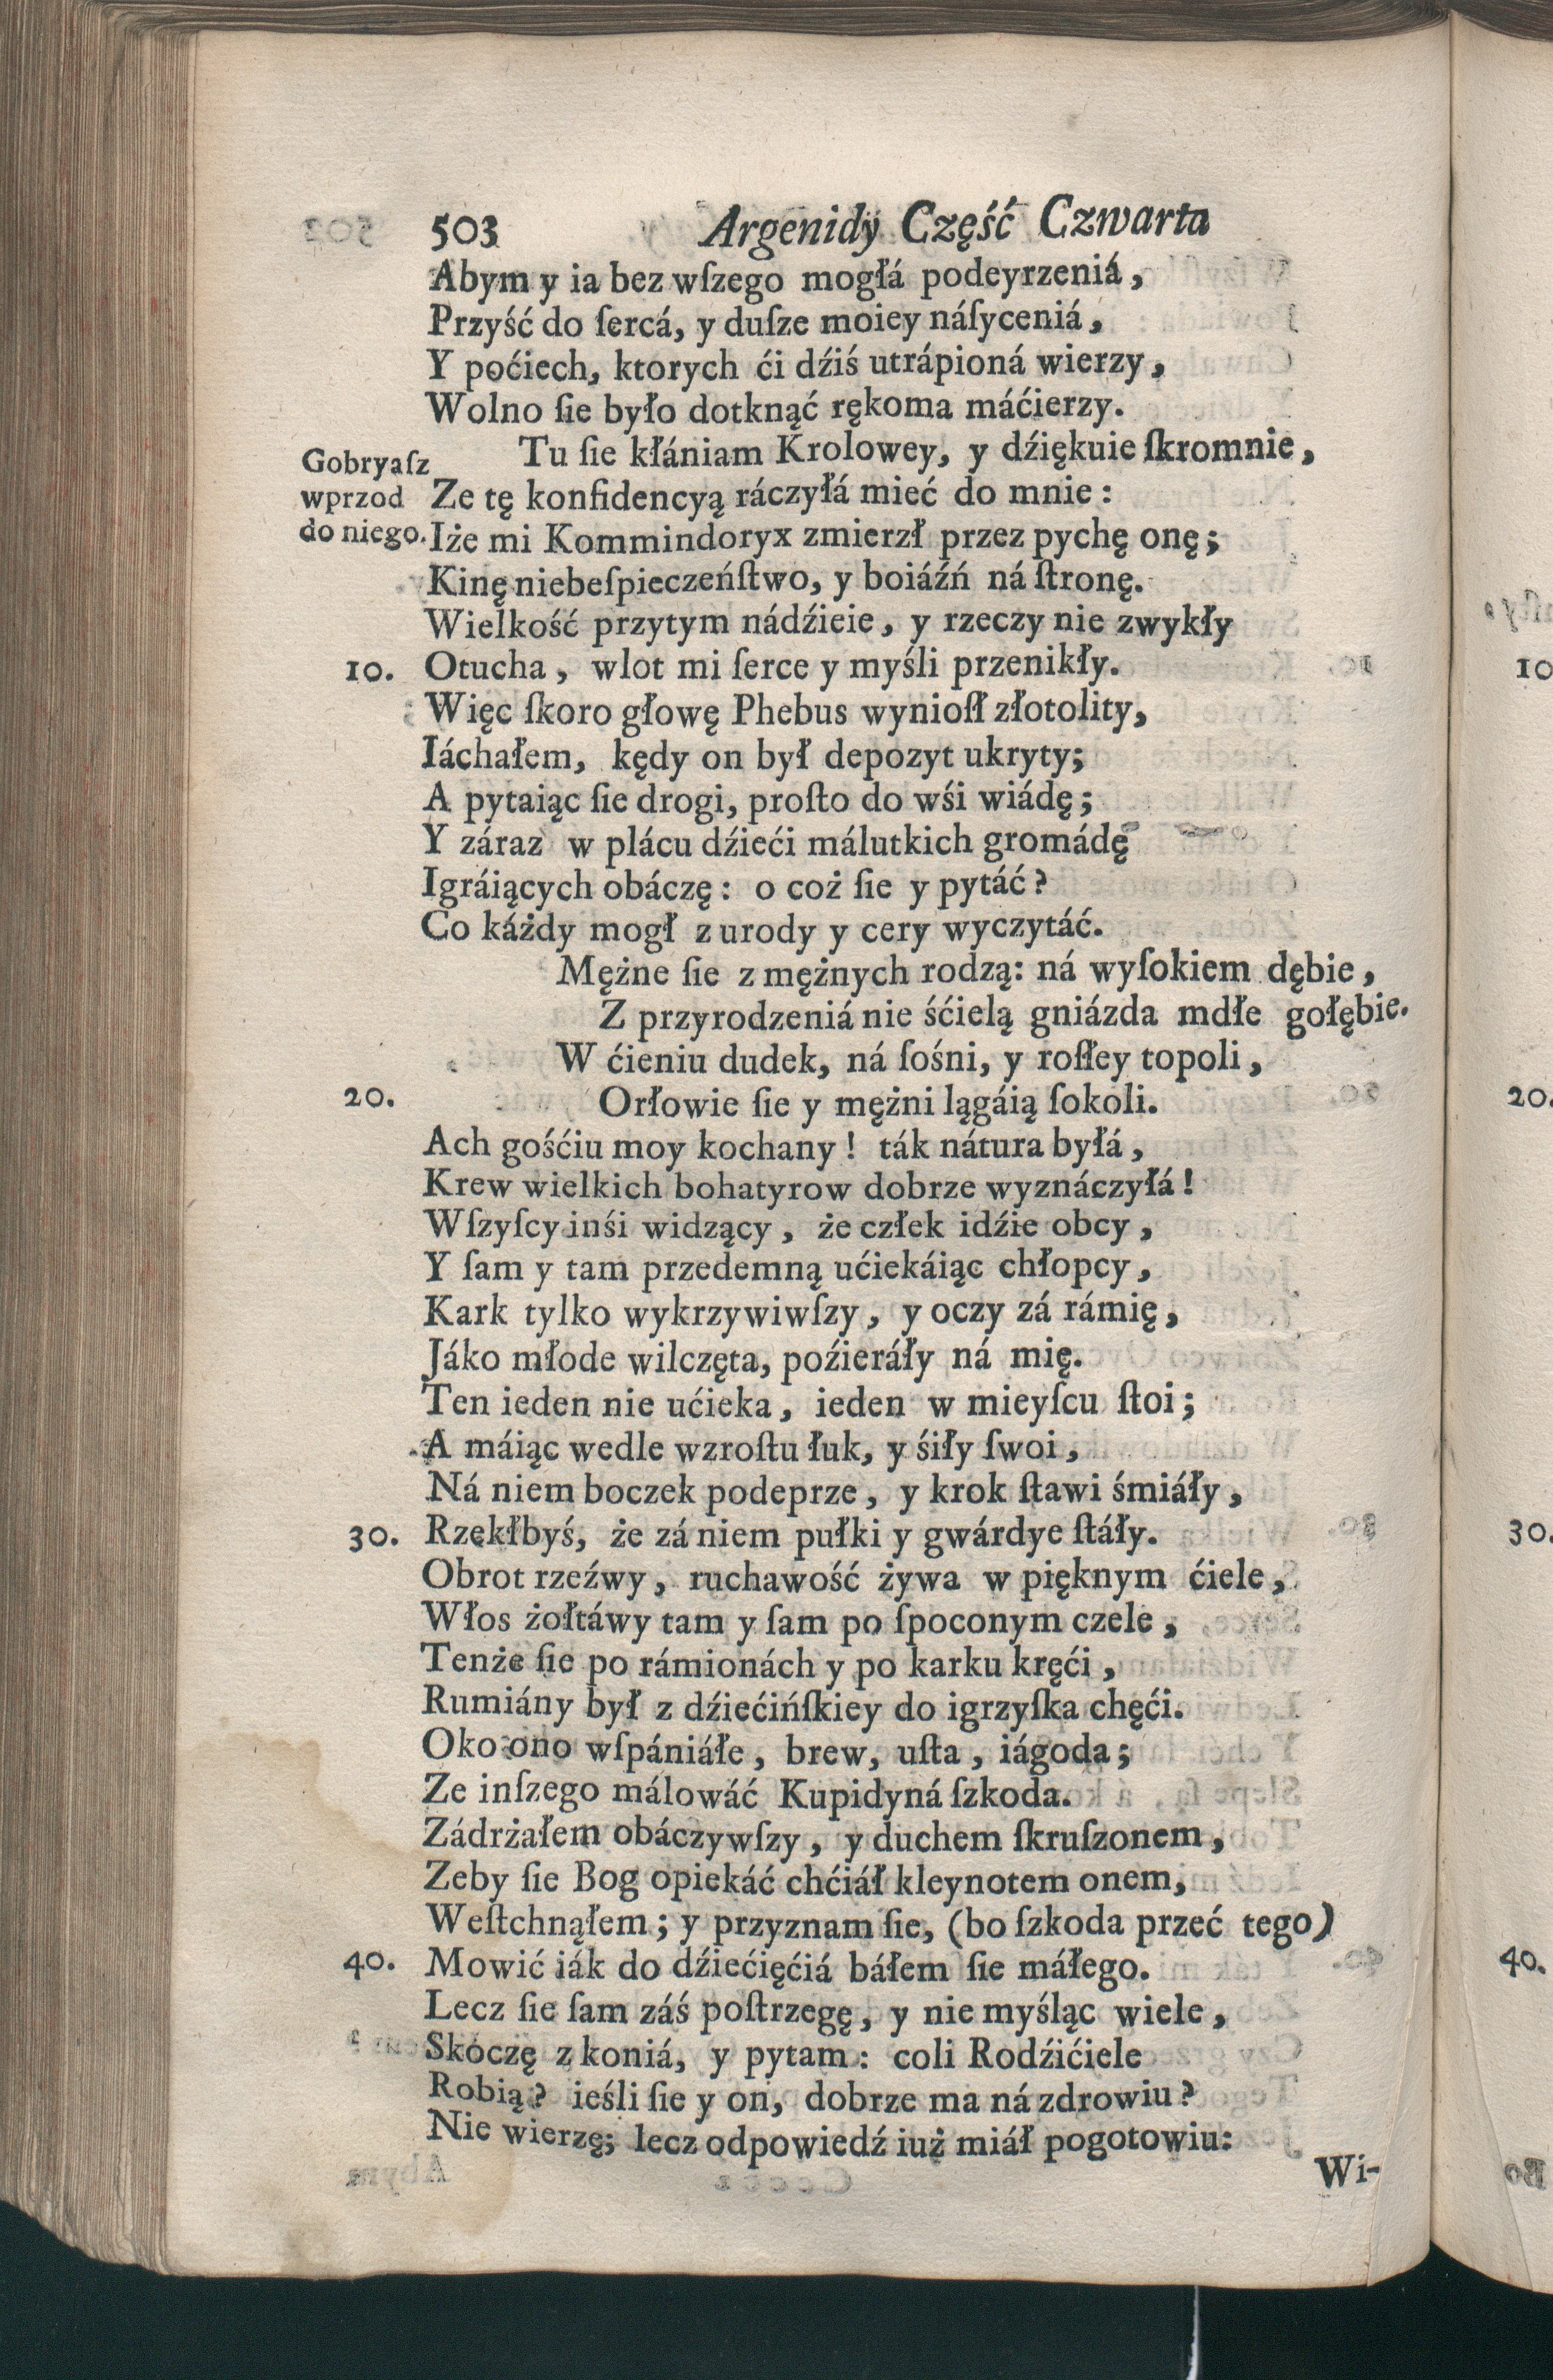 503 Argenidy Część Czwarta
Abym y ia bez wſzego mogłá podeyrzeniá,
Przyść do ſercá, y duſze moiey náſyceniá,
Y poćiech, ktorych ći dźiś utrápioná wierzy,
Wolno ſie było dotknąć rękoma máćierzy.
Tu ſie kłániam Krolowey, y dźiękuie ſkromnie,
Gobryaſz
wprzod
do niego.
Ze tę konfidencyą ráczyłá mieć do mnie:
Iże mi Kommindoryx zmierzł przez pychę onę;
Kinę niebeſpieczeńſtwo, y boiáźń ná ſtronę.
Wielkość przytym nádźieie, y rzeczy nie zwykły
10. Otucha, wlot mi ſerce y myśli przenikły.
Więc ſkoro głowę Phebus wynioſł złotolity,
Iáchałem, kędy on był depozyt ukryty;
A pytaiąc ſie drogi, proſto do wśi wiádę;
Y záraz w plácu dźieći málutkich gromádę
Igráiących obáczę: o coż ſie y pytáć?
Co káżdy mogł z urody y cery wyczytáć.
Mężne ſie z mężnych rodzą: ná wyſokiem dębie,
Z przyrodzeniá nie śćielą gniázda mdłe gołębie.
W ćieniu dudek, ná ſośni, y roſłey topoli,
20. Orłowie ſie y mężni lągáią ſokoli.
Ach gośćiu moy kochany! ták nátura byłá,
Krew wielkich bohatyrow dobrze wyznáczyłá!
Wſzyſcy inśi widzący, że człek idźie obcy,
Y ſam y tam przedemną ućiekáiąc chłopcy,
Kark tylko wykrzywiwſzy, y oczy zá rámię,
Jáko młode wilczęta, poźieráły ná mię.
Ten ieden nie ućieka, ieden w mieyſcu ſtoi;
A máiąc wedle wzroſtu łuk, y śiły ſwoi,
Ná niem boczek podeprze, y krok ſtawi śmiáły,
30. Rzekłbyś, że zá niem pułki y gwárdye ſtáły.
Obrot rzeźwy, ruchawość żywa w pięknym ćiele,
Włos żołtáwy tam y ſam po ſpoconym czele,
Tenże ſie po rámionách y po karku kręći,
Rumiány był z dźiećińſkiey do igrzyſka chęći.
Oko ono wſpániáłe, brew, uſta, iágoda;
Ze inſzego málowáć Kupidyná ſzkoda.
Zádrżałem obáczywſzy, y duchem ſkruſzonem,
Zeby ſie Bog opiekáć chćiáł kleynotem onem,
Weſtchnąłem; y przyznam ſie, (bo ſzkoda przeć tego)
40. Mowić iák do dźiećięćiá báłem ſie máłego.
Lecz ſie ſam záś poſtrzegę, y nie myśląc wiele,
Skoczę z koniá, y pytam: coli Rodźićiele
Robią? ieśli ſie y on, dobrze ma ná zdrowiu?
Nie wierzę; lecz odpowiedź iuż miáł pogotowiu:
Wi-
10
20.
30.
40.